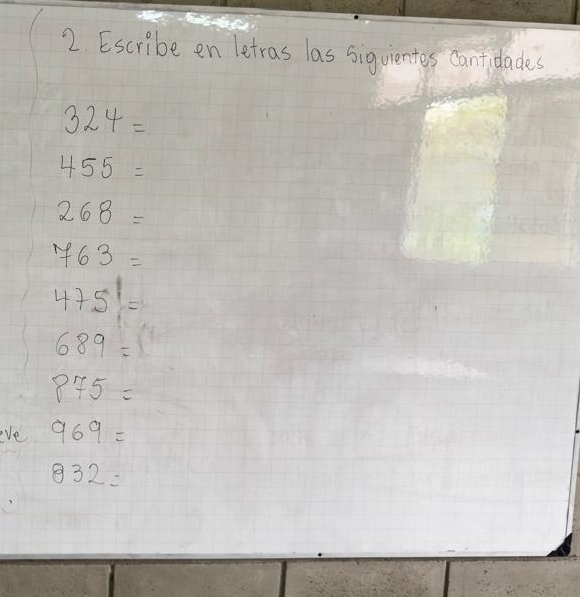 2. Escribe en letras las siguientes Cantidades
324 =
455 =
268 =
763 =
475 =
689 =
875 =
969 =
832 =